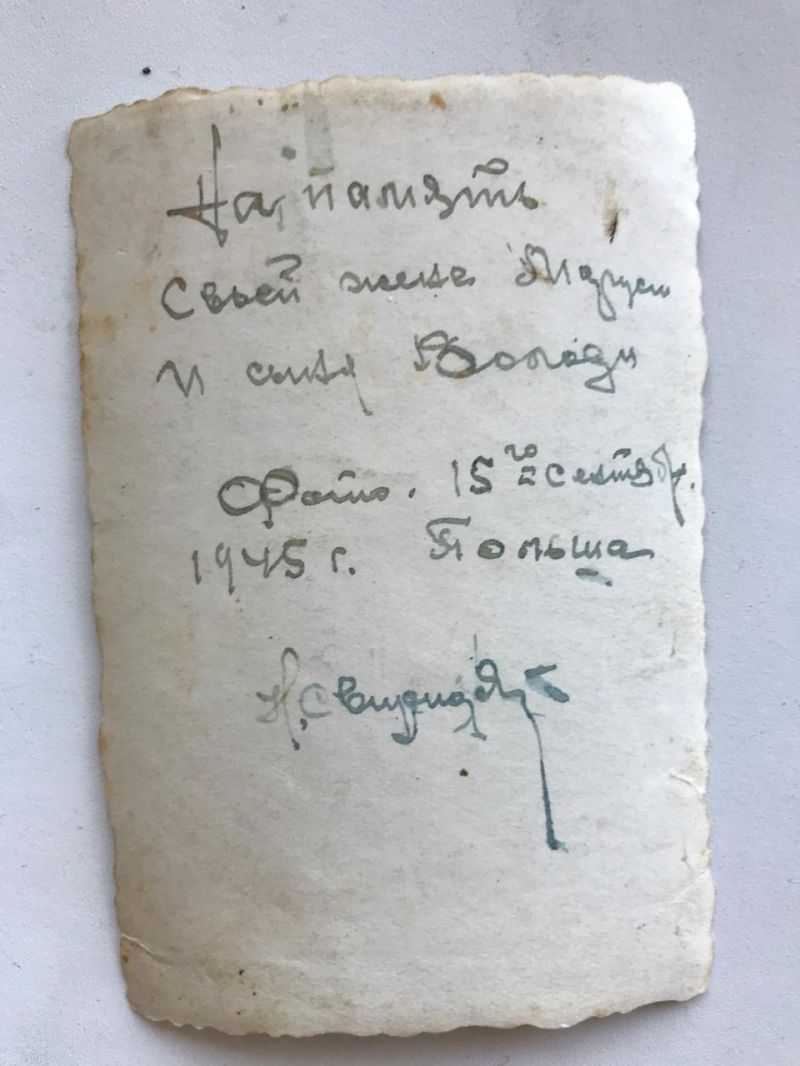 На память
своей жене Марусе
и сыну Володи
Фото. 15го сентябр.
1945 г. Польша